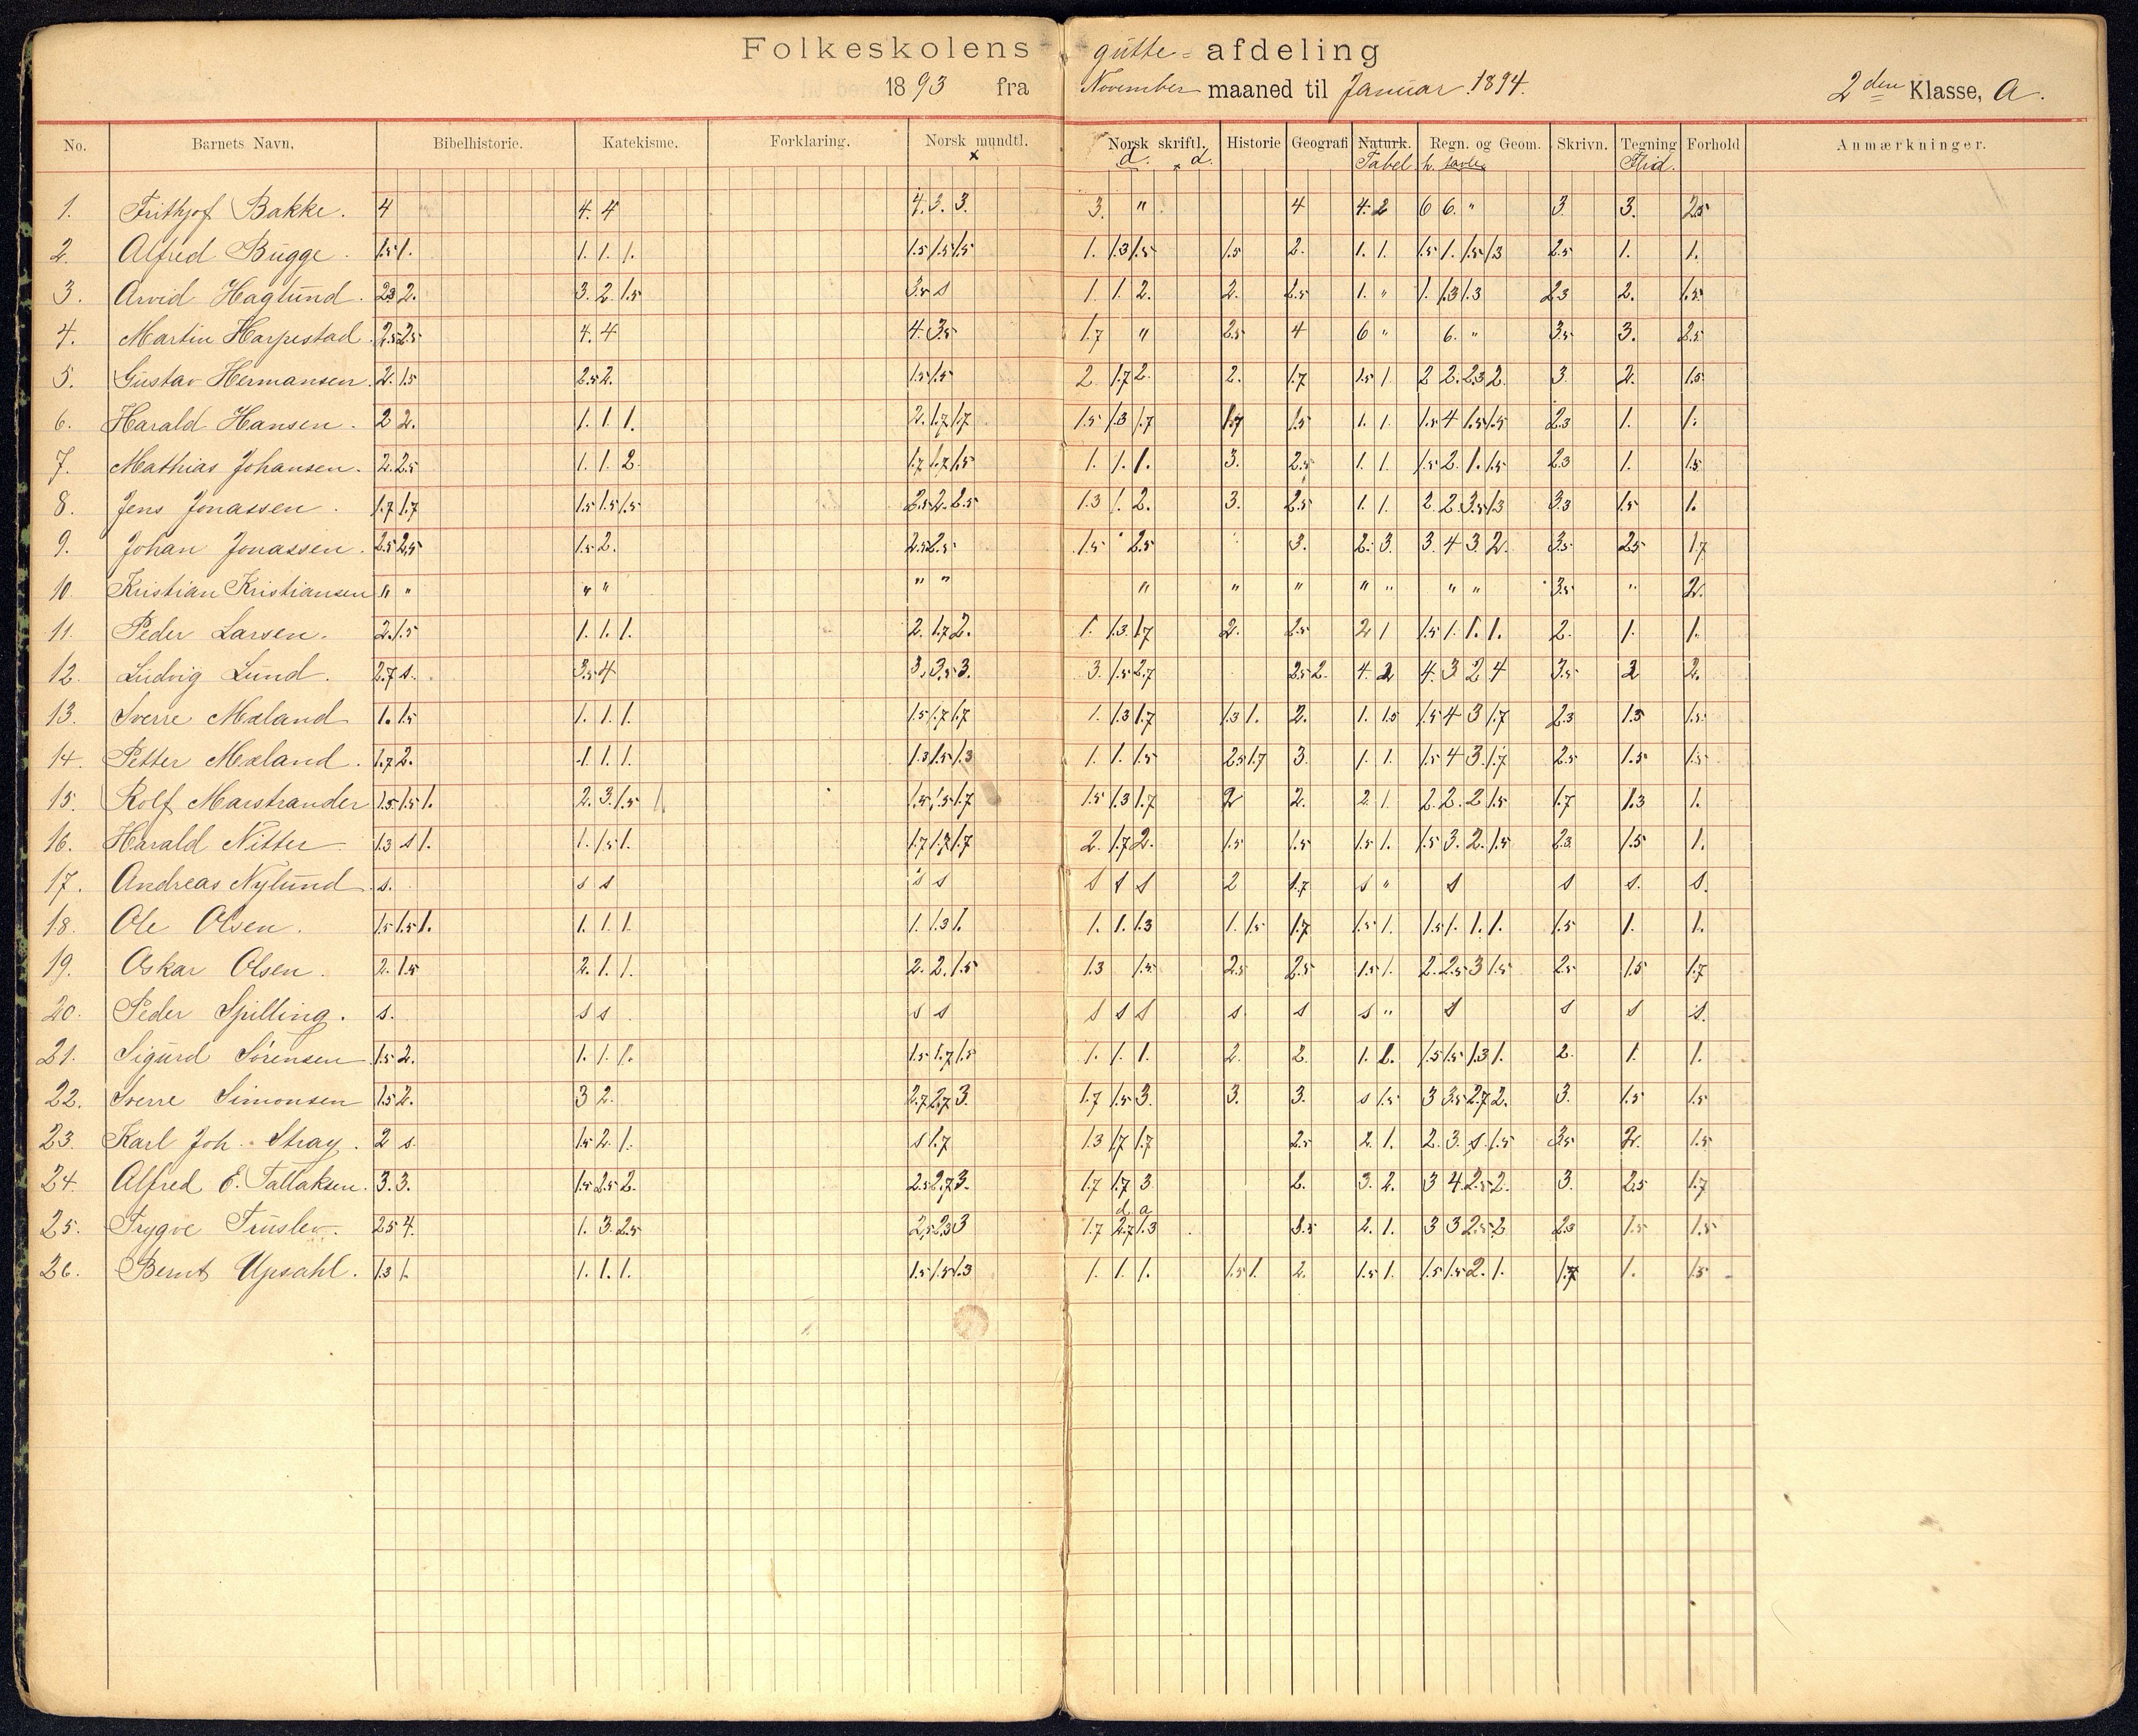 Folkeskolens gutte- afdeling
1893 fra November maaned til Januar 1894. 2den Klasse, A.
No. Barnets Navn. Bibelhistorie. Katekisme. Forklaring. Norsk mundtl. Norsk skriftl. Historie Geografi Naturk. Regn. og Geom. Skrivn. Tegning Forhold Anmærkninger.
x d. x d. Tabel h. tavle Flid.
1. Frithjof Bakke. 4 4. 4 4. 3. 3. 3. " 4 4. 2 6 6. " 3. 3. 2.5
2. Alfred Bugge. 1.5 1. 1. 1. 1. 1.5 1.5 1.5 1. 1.3 1.5 1.5 2. 1. 1. 1.5 1. 1.5 1.3 2.5 1. 1.
3. Arvid Haglund. 2.3 2. 3. 2. 1.5 3.5 s 1. 1. 2. 2. 2.5 1. " 1. 1.3 1.3 2.3 2. 1.5
4. Martin Harpestad. 2.5 2.5 4. 4 4. 3.5 1.7 " 2.5 4 6 " 6. " 3.5 3. 2.5
5. Gustav Hermansen. 2. 1.5 2.5 2. 1.5 1.5 2. 1.7 2. 2. 1.7 1.5 1 2 2. 2.3 2. 3. 2. 1.5
6. Harald Hansen. 2 2. 1. 1. 1. 2. 1.7 1.7 1.5 1.3 1.7 1.7 1.5 1. 1. 1.5 4 1.5 1.5 2.3 1. 1.
7. Mathias Johansen. 2. 2.5 1. 1. 2. 1.7 1.7 1.5 1. 1. 1. 3. 2.5 1. 1. 1.5 2. 1. 1.5 2.3 1. 1.5
8. Jens Jonassen. 1.7 1.7 1.5 1.5 1.5 2.5 2. 2.5 1.3 1. 2. 3. 2.5 1. 1. 2. 2. 3.5 1.3 3.3 1.5 1.
9. Johan Jonassen. 2.5 2.5 1.5 2. 2.5 2.5 1.5 2.5 3. 2. 3. 3. 4 3. 2. 3.5 2.5 1.7
10. Kristian Kristiansen " " " " " " " " " " " " " 3.5 " 2.
11. Peder Larsen. 2. 1.5 1. 1. 1. 2. 1.7 2. 1. 1.3 1.7 2. 2.5 2 1 1.5 1. 1. 1. 2. 1. 1.
12. Ludvig Lund. 2.7 s. 3.5 4 3. 3.5 3. 3. 1.5 2.7 2.5 2. 4. 2 4. 3 2 4 3.5 2 2.
13. Sverre Mæland 1. 1.5 1. 1. 1. 1.5 1.7 1.7 1. 1.3 1.7 1.3 1. 2. 1. 1.5 1.5 4 3 1.7 2.3 1.3 1.5
14. Petter Mæland. 1.7 2. 1. 1. 1. 1.3 1.5 1.3 1. 1. 1.5 2.5 1.7 3. 1. 1. 1.5 4 3. 1.7 2.5 1.5 1.5
15. Rolf Marstrander 1.5 1.5 1. 2. 3. 1.5 1. 1.5 1.5 1.7 1.5 1.3 1.7 2 2. 2. 1. 2. 2. 2. 1.5 1.7 1.3 1.
16. Harald Nitter 1.3 s 1. 1. 1.5 1. 1.7 1.7 1.7 2. 1.7 2. 1.5 1.5 1.5 1. 1.5 3. 2. 1.5 2.3 1.5 1.
17. Andreas Nylund s. s s s s s s s 2 1.7 s " s s s. s.
18. Ole Olsen. 1.5 1.5 1. 1. 1. 1. 1. 1.3 1. 1. 1. 1.3 1. 1.5 1.7 1.5 1. 1.5 1. 1. 1. 1.5 1. 1.
19. Oskar Olsen. 2. 1.5 2. 1. 1. 2. 2. 1.5 1.3 1.5 2.5 2.5 1.5 1. 2. 2.5 3 1.5 2.5 1.5 1.7
20. Peder Spilling. s. s s s s s s s s. s s " s s s s.
21. Sigurd Sørensen 1.5 2. 1. 1. 1. 1.5 1.7 1.5 1. 1. 1. 2. 2. 1. 2. 1.5 1.5 1.3 1. 2. 1. 1.
22. Sverre Simonsen 1.5 2. 3 2. 2.7 2.7 3. 1.7 1.5 3. 3. 3. s 1.5 3 3.5 2.7 2. 3. 1.5 1.5
23. Karl Joh. Stray. 2 s. 1.5 2. 1. s 1.7 1.3 1.7 1.7 2.5 2. 1. 2. 3. s. 1.5 3.5 2. 1.5
24. Alfred E. Tallaksen. 3. 3. 1.5 2.5 2. 2.5 2.7 3. 1.7 1.7 3 2. 3. 2. 3 4. 2.5 2. 3. 2.5 1.7
d. a
25. Trygve Truslev. 2.5 4. 1. 3. 2.5 2.5 2.3 3 1.7 2.7 1.3 3.5 2. 1. 3 3 2.5 2 2.3 1.5 1.5
26. Bernt Upsahl. 1.3 1. 1. 1. 1. 1.5 1.5 1.3 1. 1. 1. 1.5 1. 2. 1.5 1. 1.5 1.5 2. 1. 1.7 1. 1.5